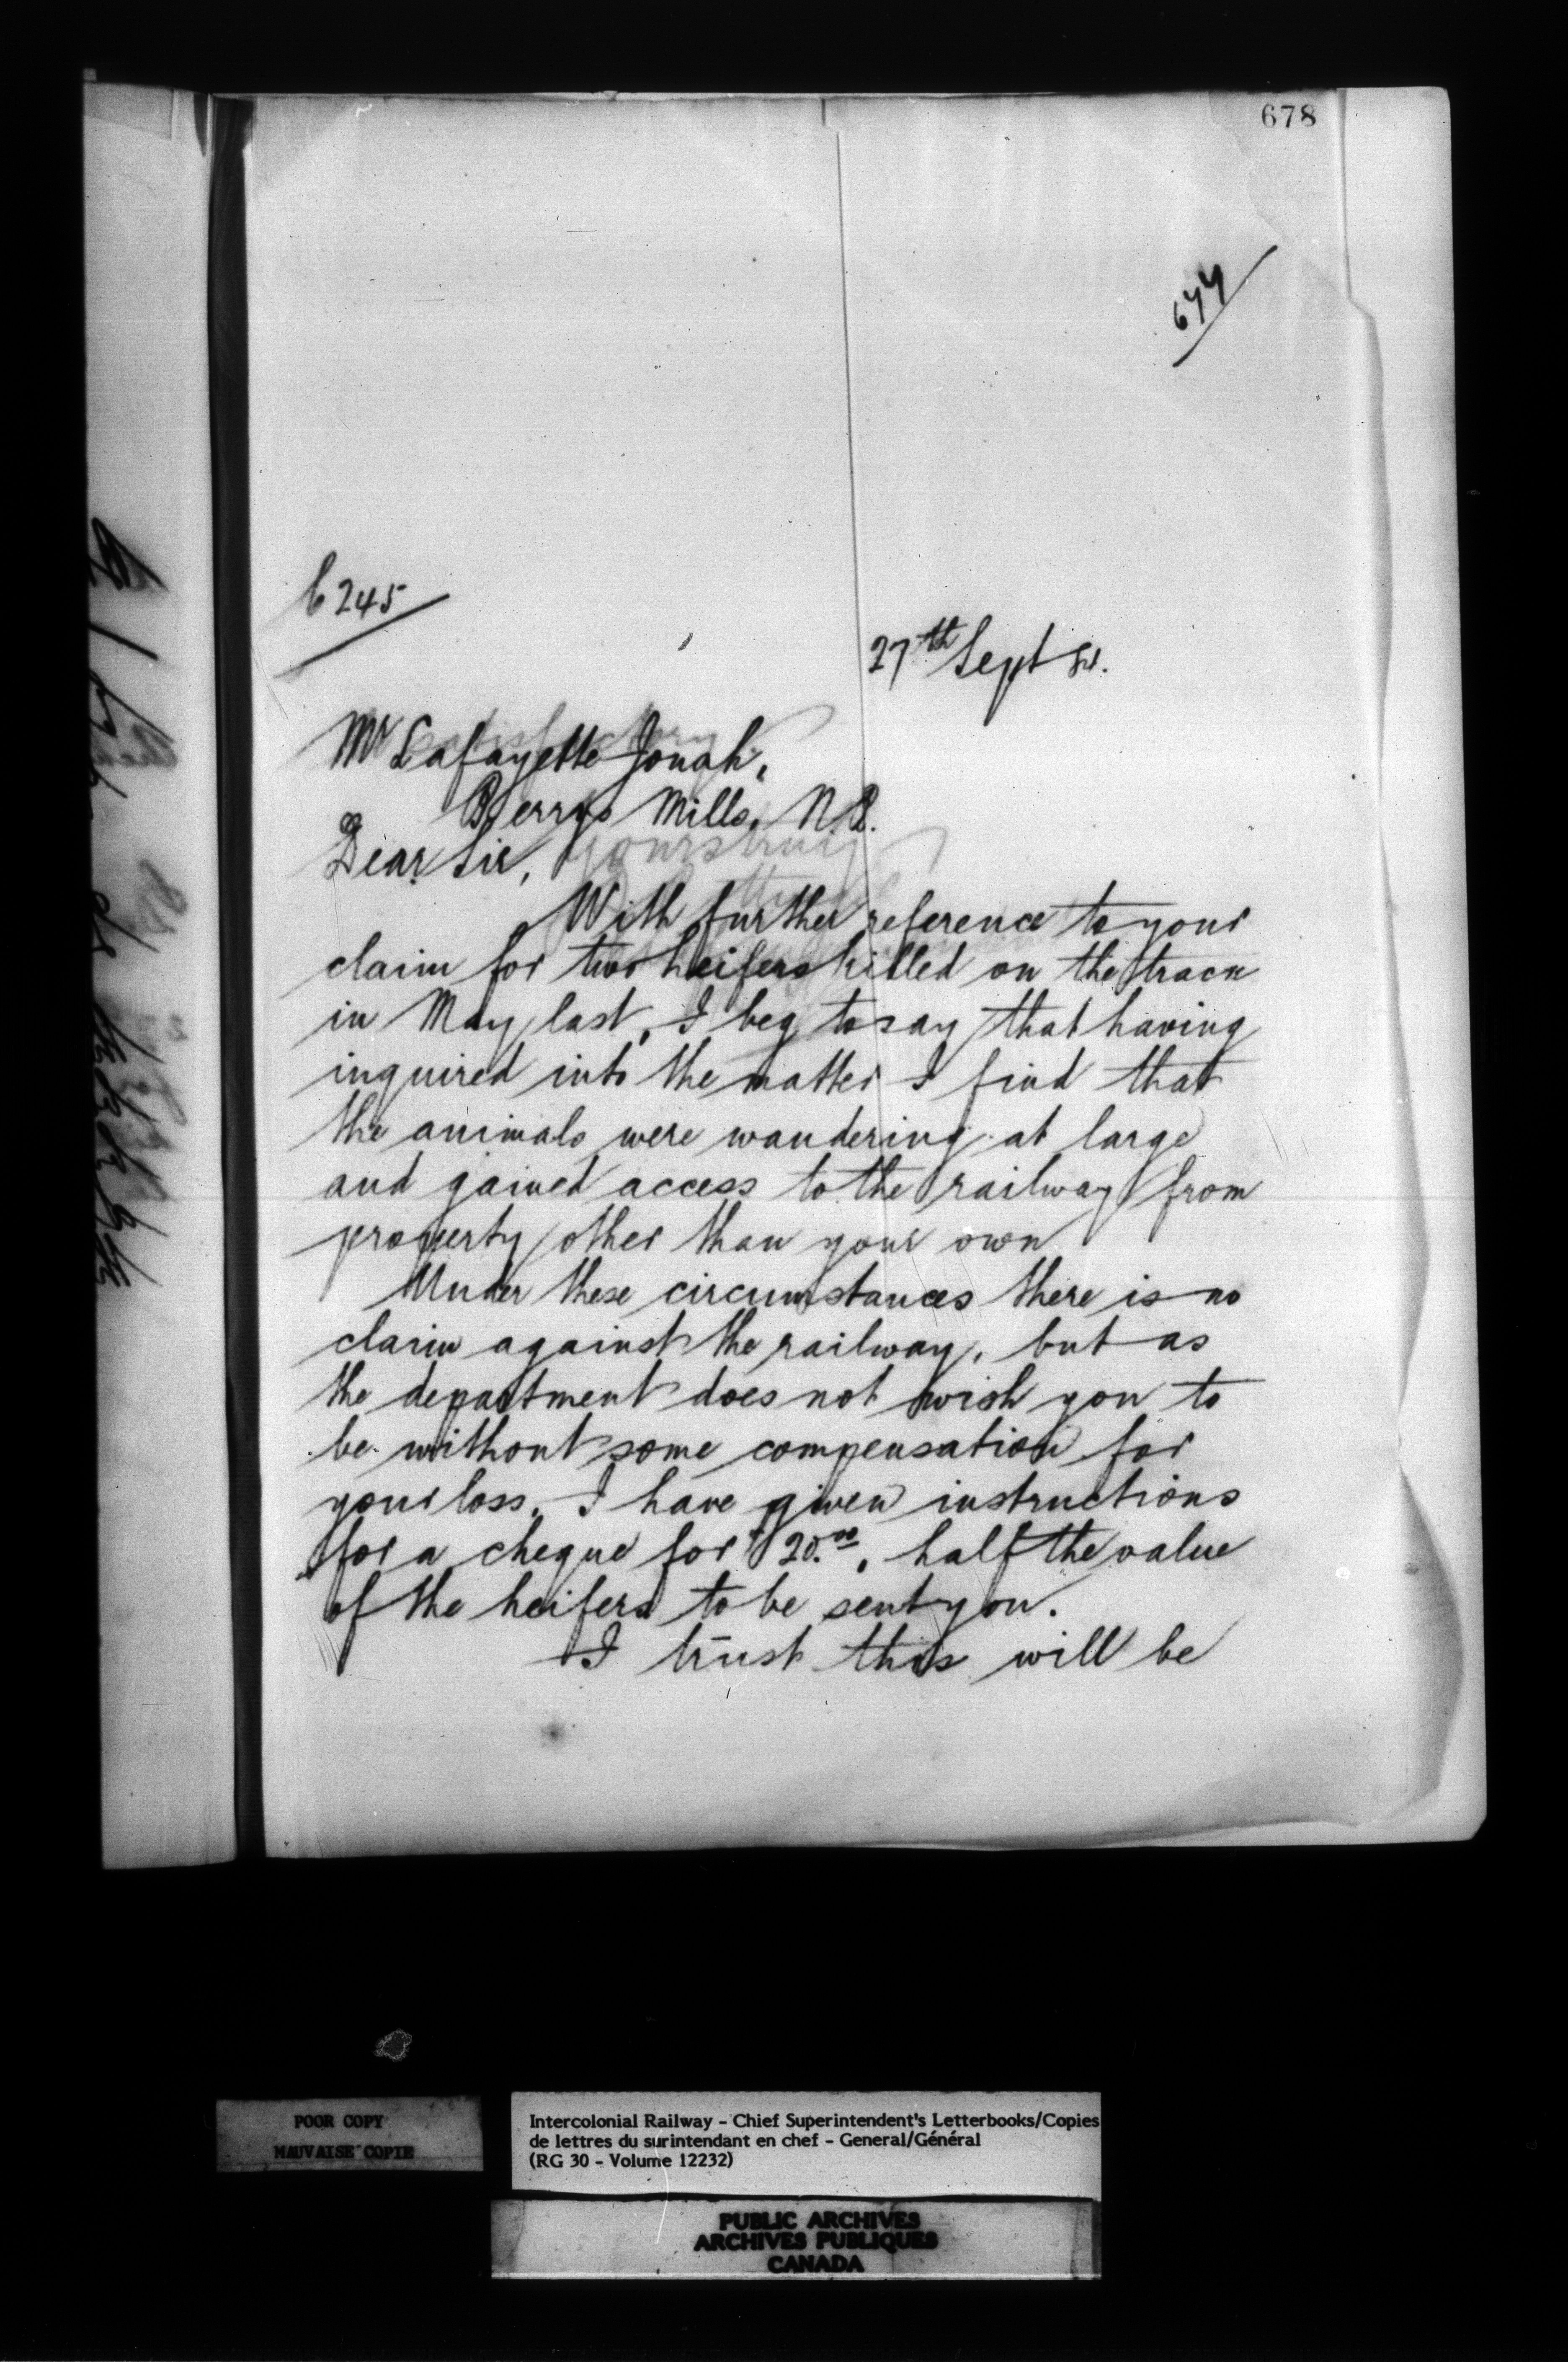 678
677
6245
27th Sept
Mr Lafayette Jonah,
Berrys Mills, N.B.
Dear Sir,
With further reference to your
claim for two heifers killed on the track
in May last, I beg to say that having
inquired into the matter I find that
the animals were wandering at large
and gained access to the railway from
property other than your own.
Under these circumstances there is no
claim against the railway, but as
the department does not wish you to
be without some compensation for
your loss, I have given instructions
for a cheque for $20.00, half the value
of the heifers to be sent you.
I trust this will be
POOR COPY
MAUVAISE COPIE
Intercolonial Railway - Chief Superintendent's Letterbooks/Copies
de lettres du surintendant en chef - General/Général
(RG 30 - Volume 12232)
PUBLIC ARCHIVES
ARCHIVES PUBLIQUES
CANADA